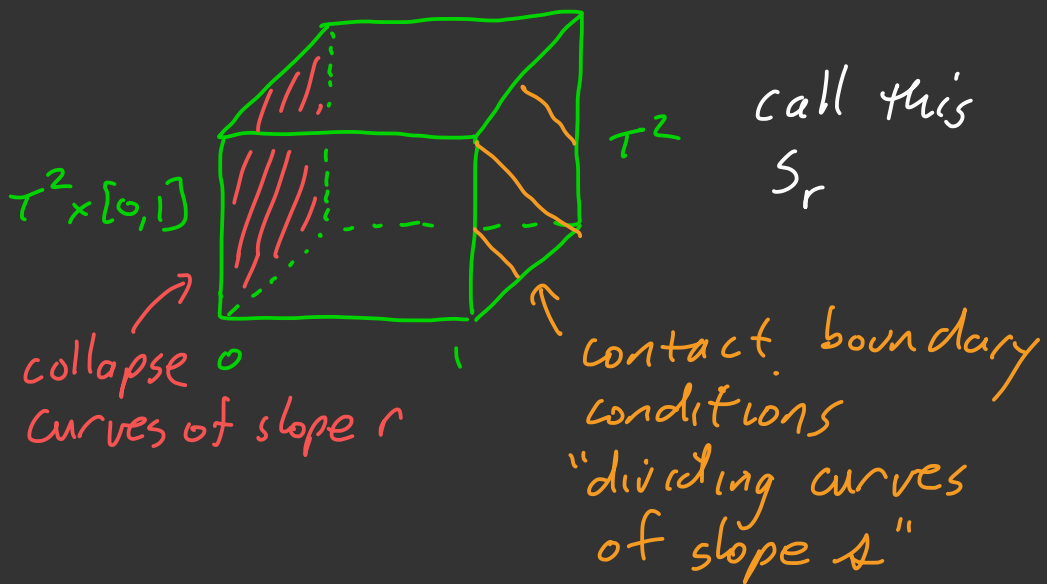 call this
S_r
T² × [0,1]
T²
0
1
collapse
curves of slope r
contact boundary
conditions
"dividing curves
of slope s"